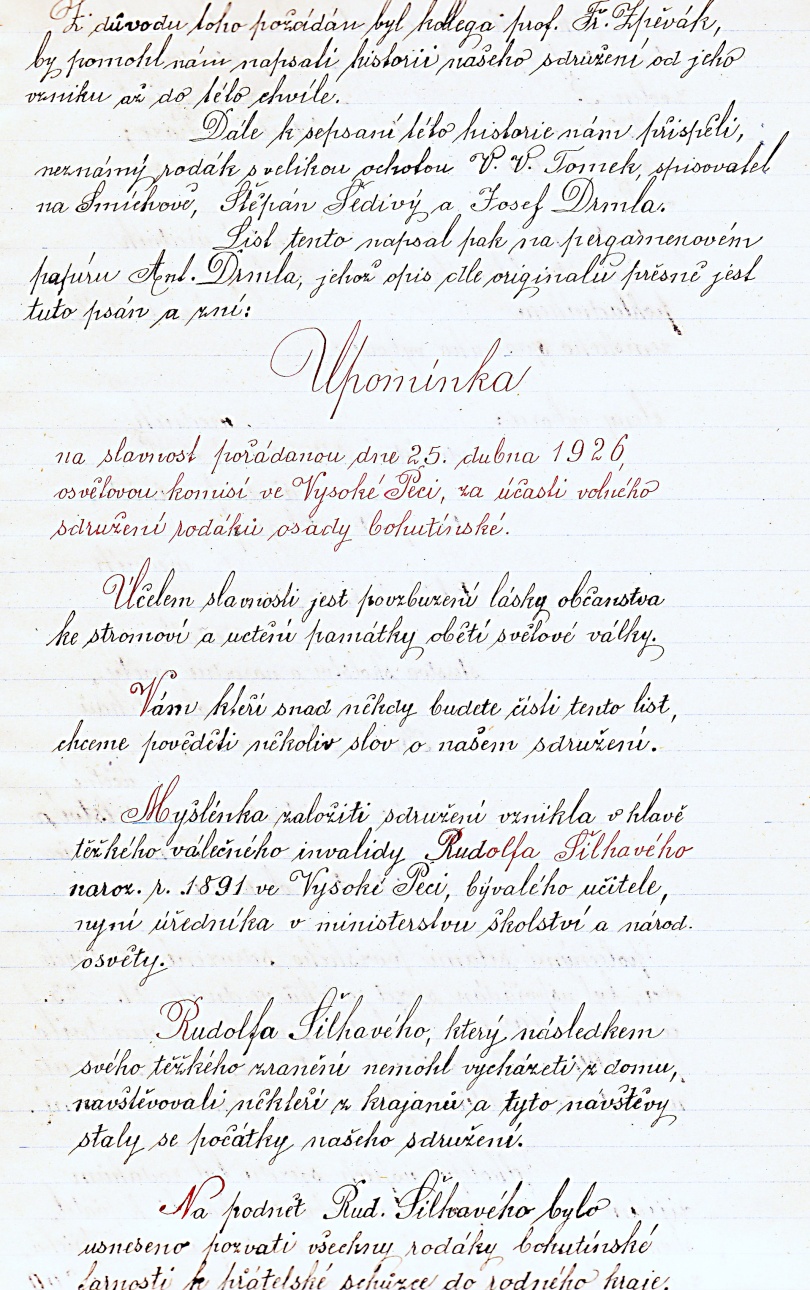 Z důvodu toho požádán byl kollega prof. Fr. Zpěvák,
by pomohl nám napsati historii našeho sdružení od jeho
vzniku až do této chvíle.
Dále k sepsaní této historie nám přispěli,
neznámý rodák s velikou ochotou V. V. Tomek, spisovatel
na Smíchově, Štěpán Šedivý a Josef Drmla.
List tento napsal pak na pergamenovém
papíru Ant. Drmla, jehož opis dle originalu přesně jest
tuto psán a zní:
Upomínka
na slavnost pořádanou dne 25. dubna 1926,
osvětovou komisí ve Vysoké Peci, za účasti volného
sdružení rodáků osady bohutínské.
Účelem slavnosti jest povzbuzení lásky občanstva
ke stromoví a uctění památky obětí světové války.
Vám kteří snad někdy budete čísti tento list,
chceme pověděti několiv slov o našem sdružení.
Myšlénka založiti sdružení vznikla v hlavě
těžkého válečného invalidy Rudolfa Šilhavého
naroz. r. 1891 ve Vysoké Peci, bývalého učitele,
nyní úředníka v ministerstvu školství a národ.
osvěty.
Rudolfa Šilhavého, který následkem
svého těžkého zranění nemohl vycházeti z domu,
navštěvovali někteří z krajanů a tyto návštěvy
staly se počátky našeho sdružení.
Na podnět Rud. Šilhavého bylo
usneseno pozvati všechny rodáky bohutínské
farnosti k přátelské schůzce do rodného kraje.